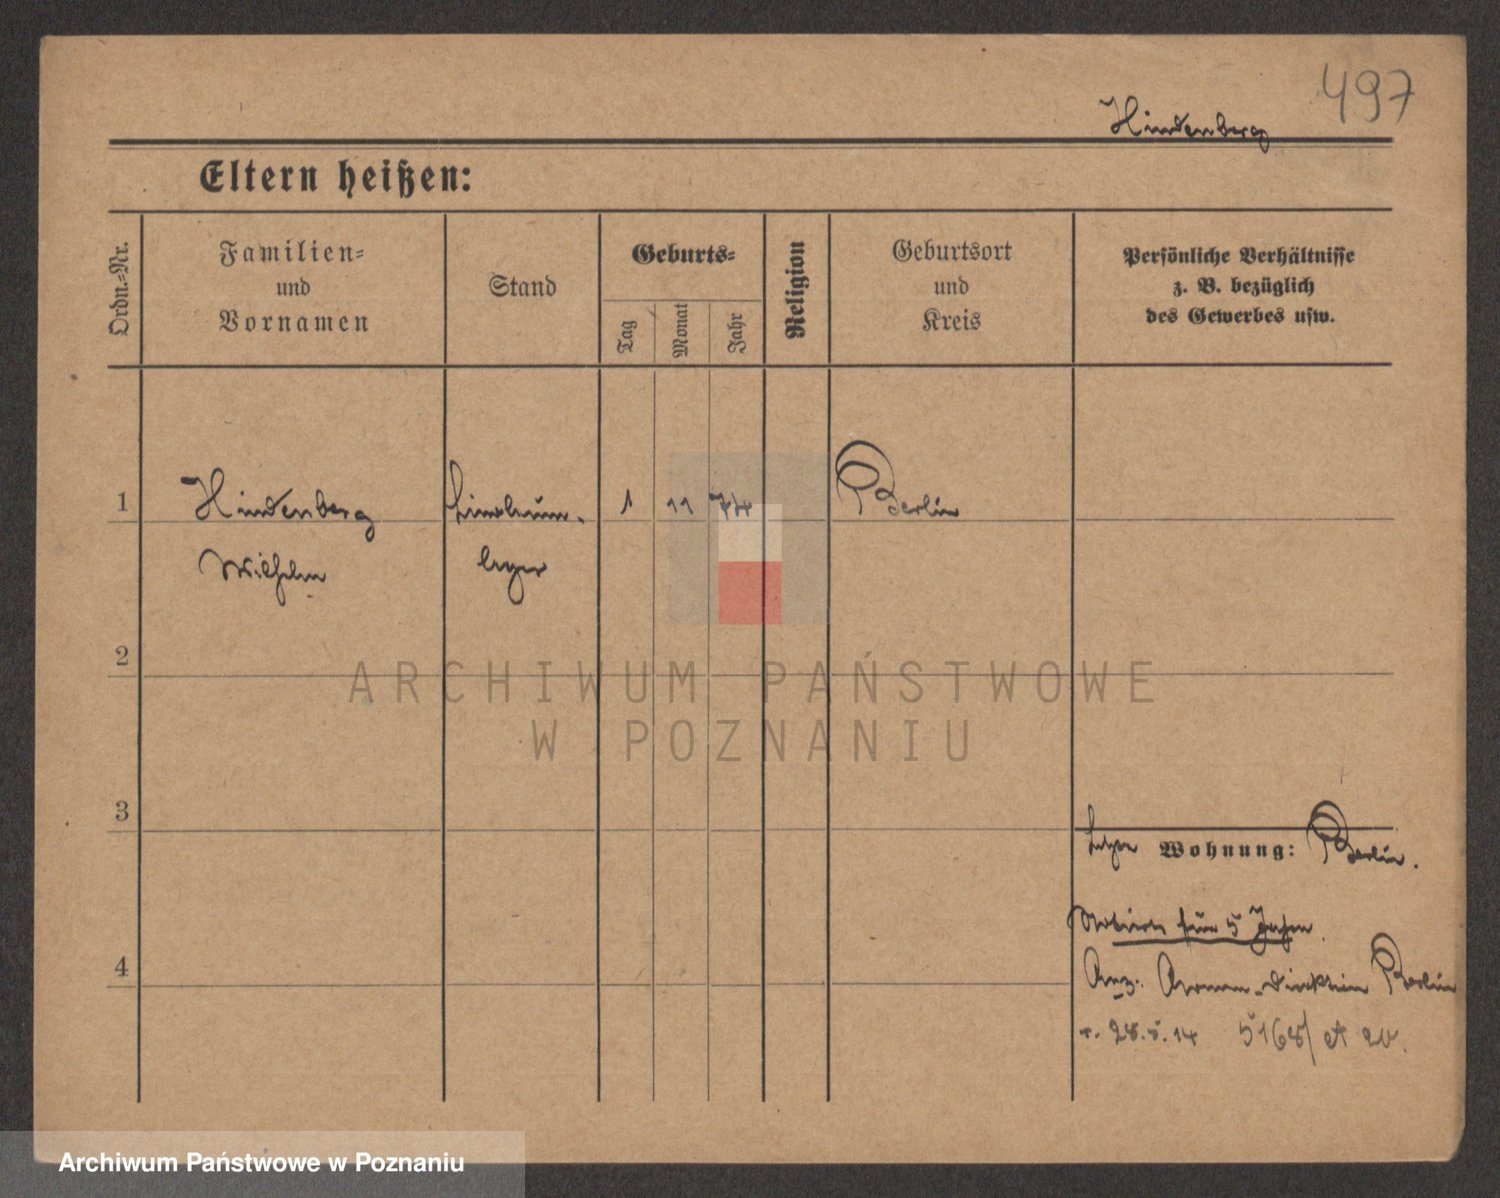 497
Hindenberg
Eltern heißen:
Ordn.=Nr.
Familien=
und
Vornamen
Stand
Geburts=
Tag
Monat
Jahr
Religion
Geburtsort
und
Kreis
Persönliche Verhältnisse
z. B. bezüglich
des Gewerbes usw.
1
Hindenberg
Linoleum-
1 11 74
Berlin
Wilhelm
leger
2
ARCHIWUM PAŃSTWOWE
W POZNANIU
3
Letzte Wohnung: Berlin.
Notiert für 5 Jahre.
4
Anz. Armen-Direktion Berlin
v. 28.5.14 5168/
Archiwum Państwowe w Poznaniu